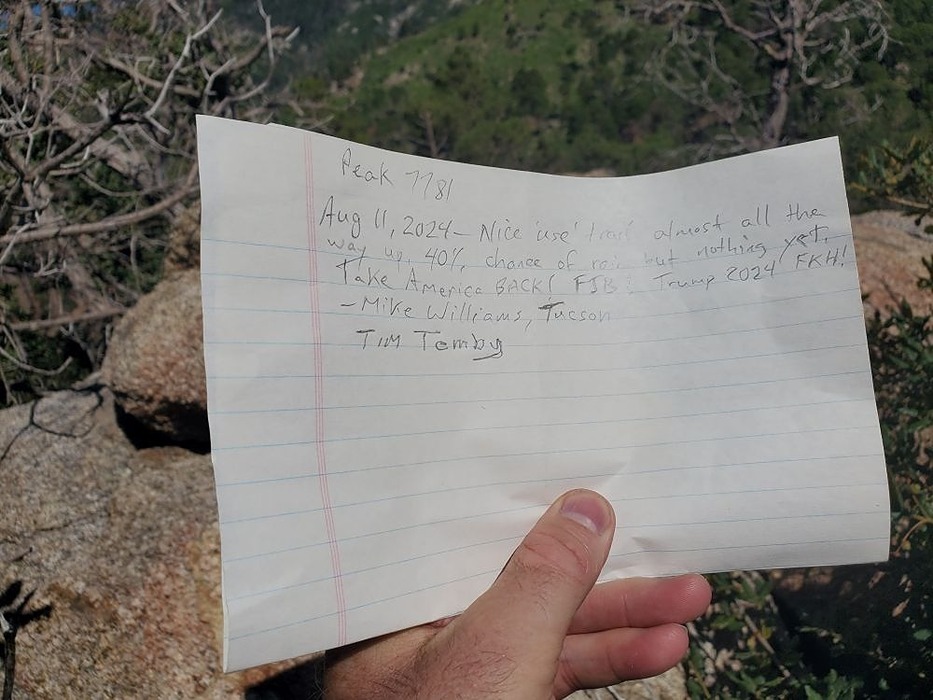 Peak 7781
Aug 11, 2024 - Nice 'use' trail almost all the
way up. 40% chance of rain but nothing yet.
Take America BACK! FJB! Trump 2024! FKH!
- Mike Williams, Tucson
Tim Tomby